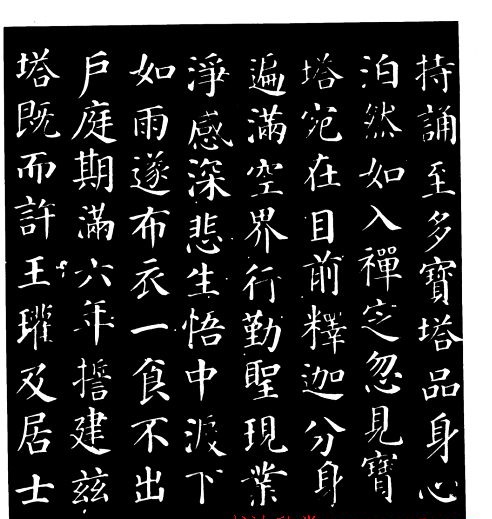 持誦至多寶塔品身心
泊然如入禪定忽見寶
塔宛在目前釋迦分身
遍滿空界行勤聖現業
淨感深悲生悟中淚下
如雨遂布衣一食不出
戶庭期滿六年誓建茲
塔既而許王瓘及居士